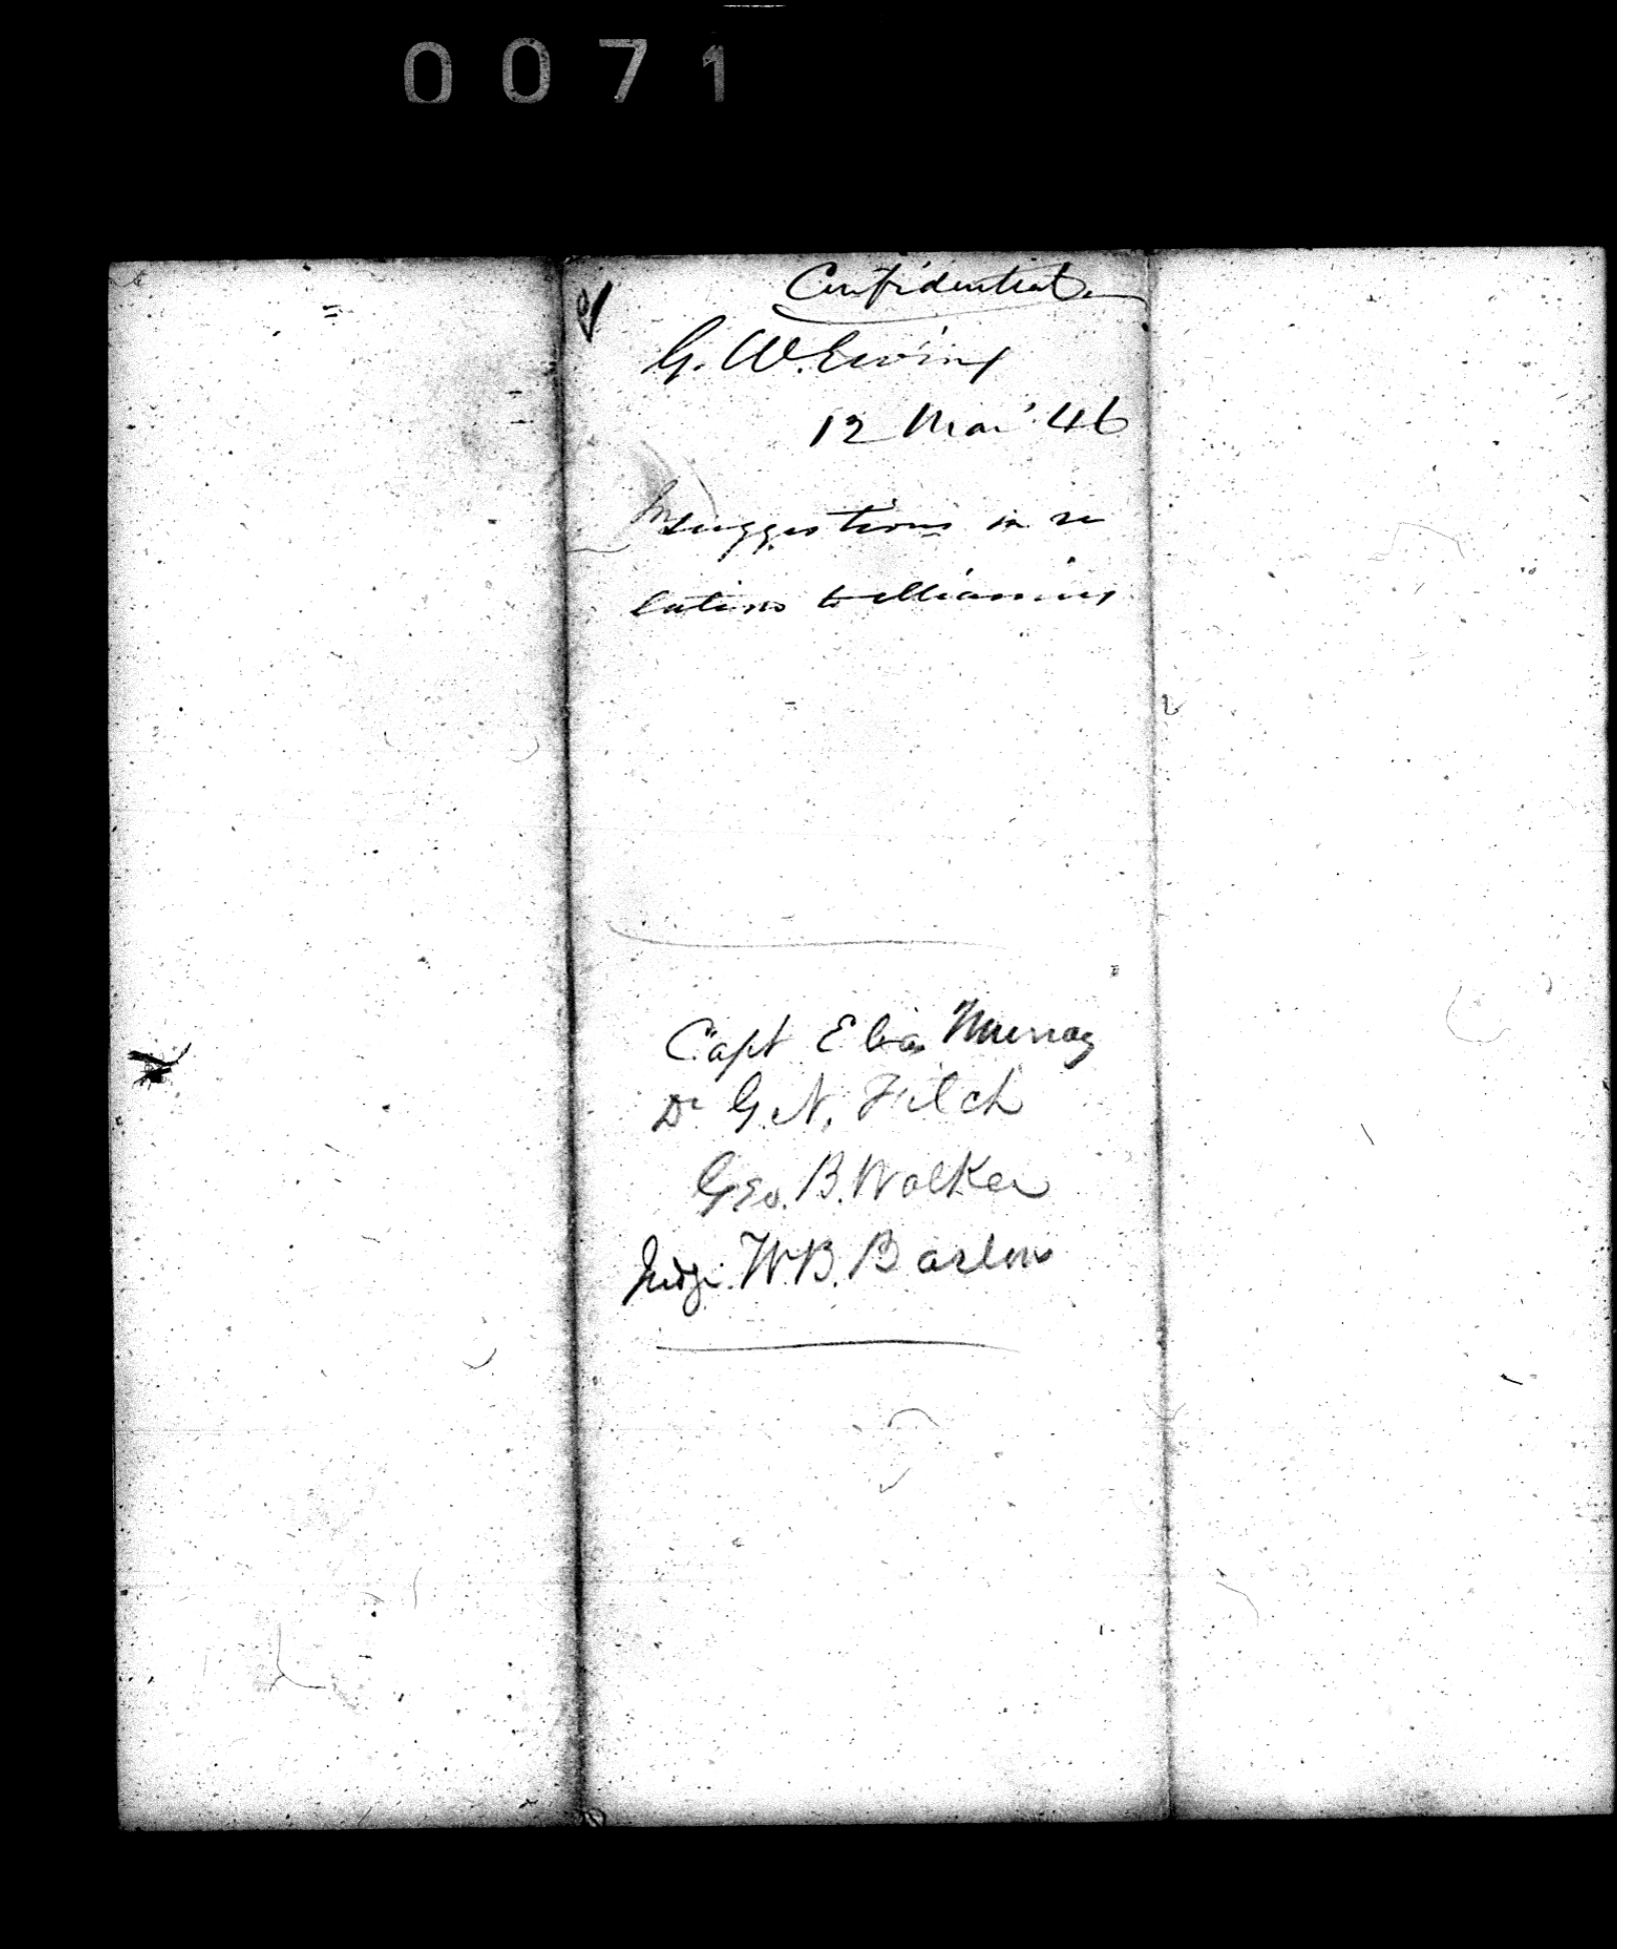 0071
Confidential.
G. W. Ewing
12 Mar '46
suggestions in re
lations to Miamies
Capt Elias Murray
Dr G. N. Fitch
Geo. B. Walker
Judge W. B. Barlow